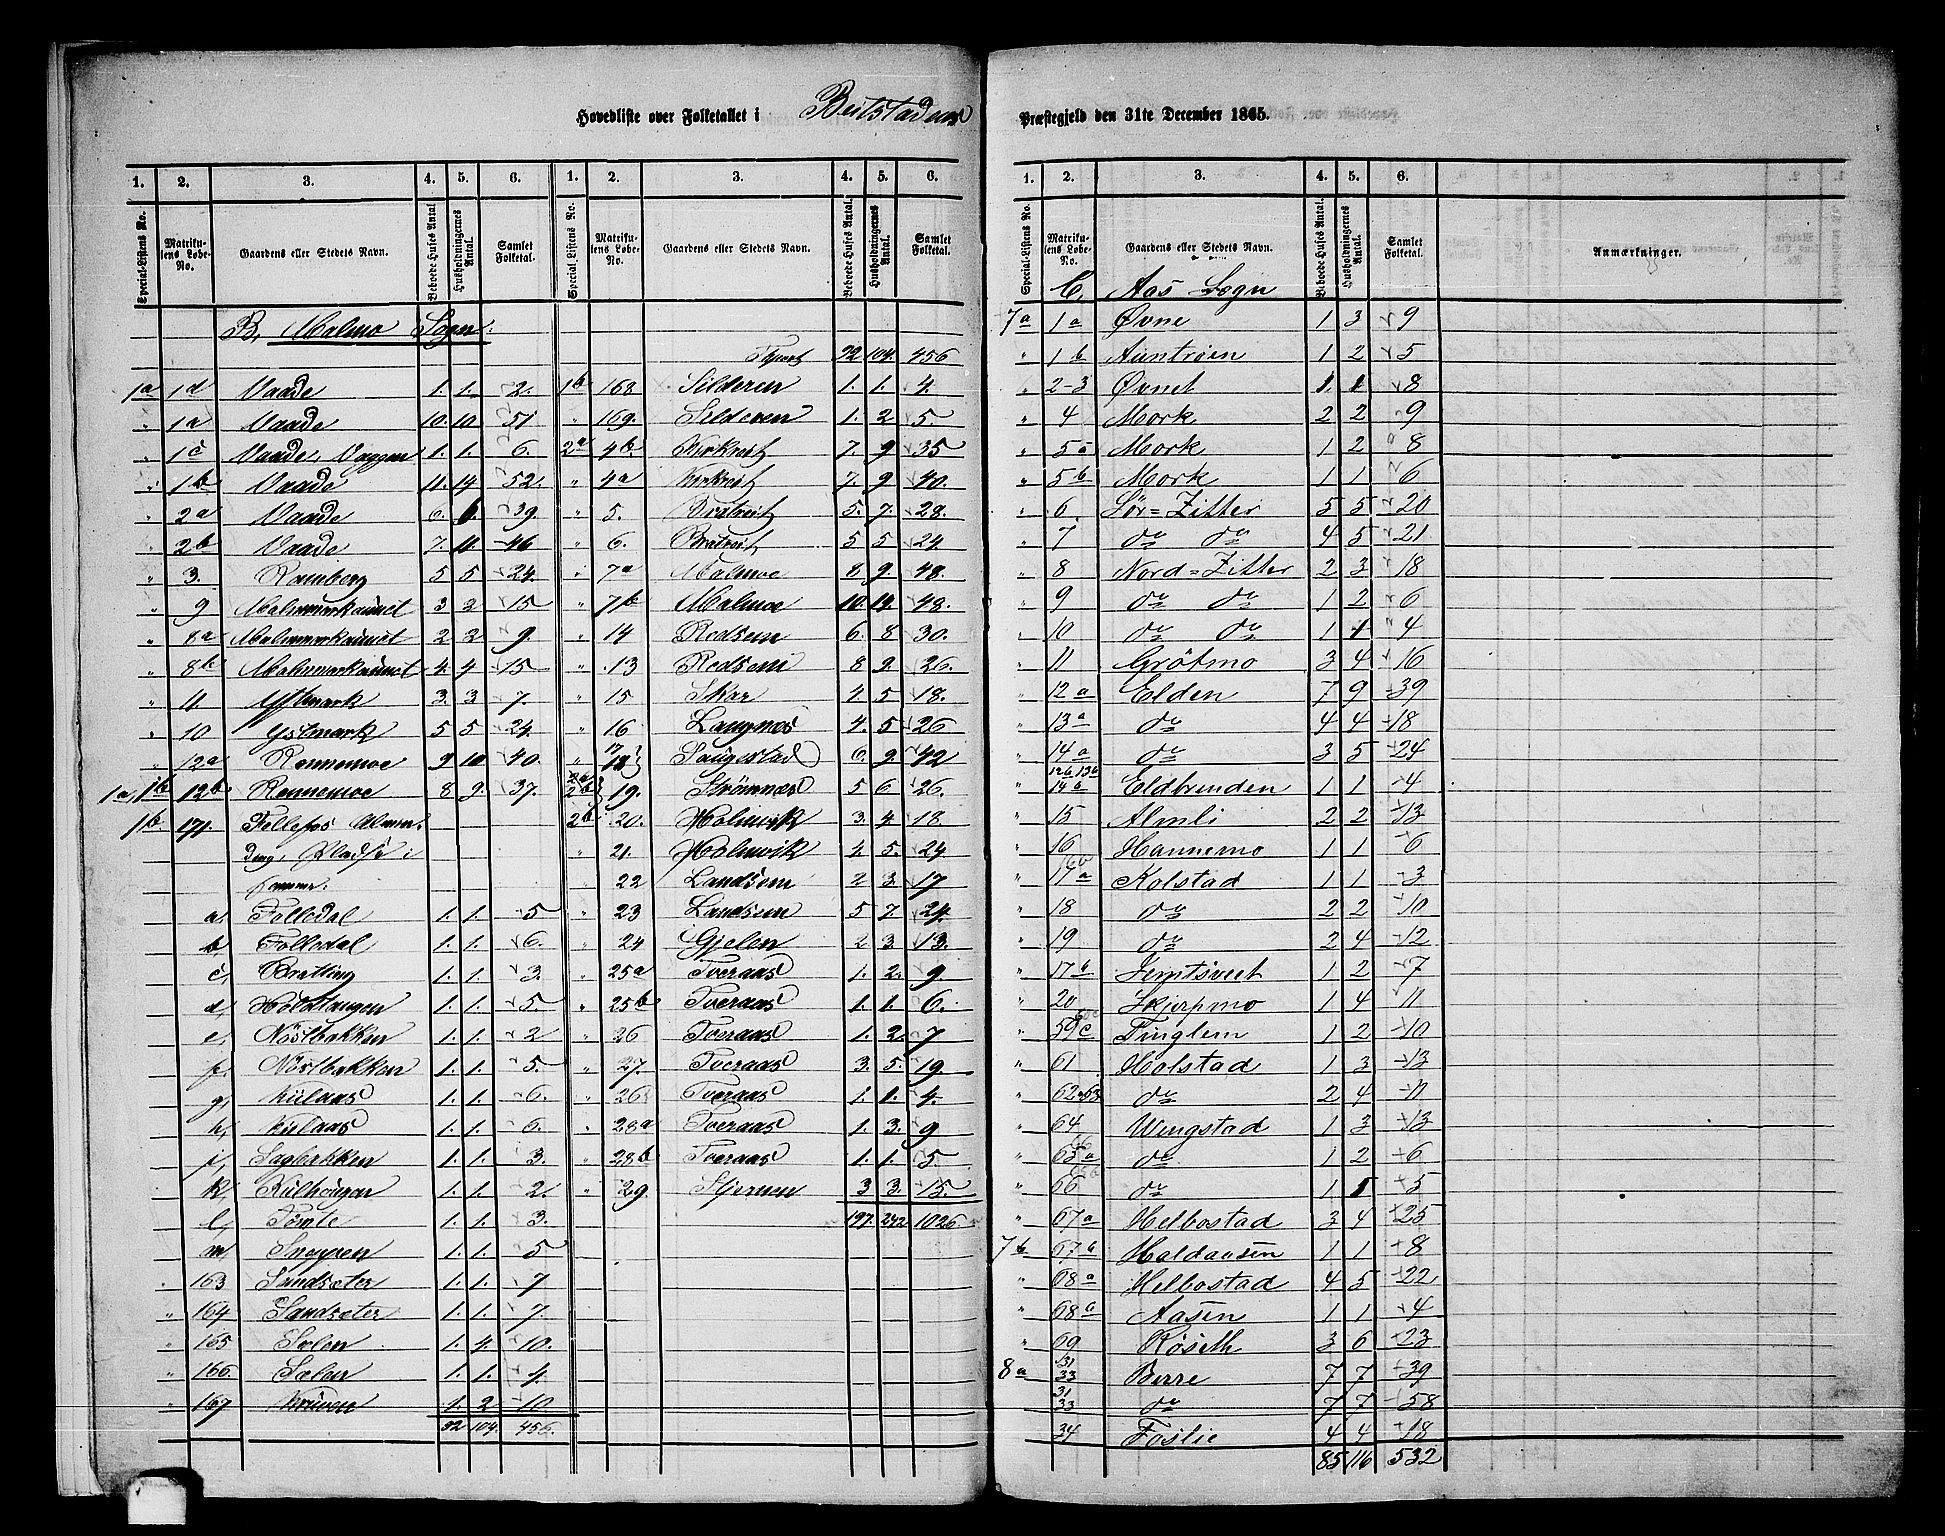 Hovedliste over Folketallet i Beitstadens Præstegjeld den 31te December 1865.
1. 2. 3. 4. 5. 6. 1. 2. 3. 4. 5. 6.
Special-Listens No. Matrikulens Løbe-No. Gaardens eller Stedets Navn. Beboede Huses Antal Husholdningernes Antal. Samlet Folketal. Special Listens No. Matrikulens Løbe-No. Gaardens eller Stedets Navn. Beboede Huses Antal. Husholdningernes Antal. Samlet Folketal.
B. Malmo Sogn.
1a 1d Vaade 1. 1. 2.
" 1a Vaade 10. 10 51
" 1c Vaade, Vaggen 1. 1. 6.
" 1b Vaade 11. 14 52.
" 2a Vaade 6. 6. 39.
" 2b Vaade 7. 11. 46
" 3. Ramberg 5 5 24.
" 9 Malmmarkaunet 3 3 15
" 8a Malmmarkaunet 2 2 9.
" 8b Malmmarkaunet 4. 4 15
" 11 Ystmark 3. 3 7.
" 10 Ystmark 5 5 24.
" 12a Rennemoe 9 10 40.
1a, 1b 12b Rennemoe 8 9. 37.
1b. 171. Follafos Almen-
ding, Pladse i
samme.
a, Folledal 1. 1. 5
b, Folledal 1. 1. 6.
c, Bratting 1. 1. 3.
d, Holdtangen 1. 1. 5.
e, Nöstbakken 1. 1. 2
f, Nöstbakken 1. 1. 5.
g, Kulaas 1. 1. 6.
h, Kulaas 1. 1. 6.
i, Sagbakken 1. 1. 3.
k, Kulhaugen 1. 1. 2.
l, Tømte 1. 1. 3.
m Sneppen 1. 1. 5
" 163 Sandsæter 1. 1. 7
" 164 Sandsæter 1. 1. 7.
" 165 Solen 1. 4. 10.
" 166 Solen 1. 1. 4.
" 167 1. 2 10
92 104. 456.
Tsport 92 104. 456
1b 168 Silderen 1. 1. 4.
" 169. Silderen 1. 2 5.
2a 4b. Kirkreit 7. 9 35
" 4a Kirkreit 7. 9. 40.
" 5. Bratreit 5. 7. 28.
" 6. Bratreit 5 5 24.
" 7a Malmoe 8 9. 48.
" 7b Malmoe 10. 13. 48.
" 14 Rodsem 6. 8 30.
" 13 Rodsem 8 9. 26.
" 15 Skar 4. 5 18.
" 16 Langnes 4. 5 26
" 17 18 Saugestad 6. 9. 42
2a 2b 19. Strømnæs 5 6 26.
2b 20. Holmvik 3. 4. 18.
" 21. Holmvik 4. 5. 24
" 22 Landsem 2 3. 17
" 23 Landsem 5 7. 24.
" 24 Gjelen 2 3. 13.
" 25a Tveraas 1. 2. 9
" 25b Tveraas 1. 1. 6.
" 26 Tveraas 1. 2. 7
" 27. Tveraas 3. 5. 19.
" 26 Tveraas 1. 1. 4.
" 28a Tveraas 1. 3. 9
" 28b Tveraas 1. 1. 5.
" 29 Stjernen 3 3. 15.
197. 242 1026.
1. 2. 3. 4. 5. 6.
Special-Listens No. Matrikulens Løbe-No. Gaardens eller Stedets Navn. Beboede Huses Antal. Husholdningernes Antal. Samlet Folketal. Anmærkninger.
C, Aas Sogn
7a 1a Øvne 1 3 9
" 1b Auntrøen 1 2 5
" 2-3 Øvnet 1. 1 8
" 4 Mork 2 2 9
" 5a Mork 1 2 8
" 5b Mork 1 1 6
" 6 Sør=Zitter 5 5 20
" 7 do do 4 5 21
" 8 Nord=Zitter 2 3 18
" 9 do do 1 2 6
" 10 do do 1 1 4
" 11 Grötmo 3 4 16
" 12a Elden 7 9 39
" 13a do 4 4 18
" 14a do 3 5 24
12b 13b 14a Eldbrenden 1 1 4
" 15 Almli 2 2 13
" 16 Hannemo 1 1 6
" 17a Kolstad 1 1 3
" 18 do 2 2 10
" 19 do 2 4 12
" 17b Jemtsveet 1 2 7
" 20 Skjerpmo 1 4 11
" 59c Tinglem 1 2 10
" 61 Holstad 1 3 13
" 62-63 do 2 4 11
" 64 Wengstad 1 3 13
" 65a do 1 2 6
" 66 do 1 1 5
" 67a Helbostad 3 4 25
7b 67a Haldaasen 1 1 8
" 68a Helbostad 4 5 22
" 68a Aasen 1 1 4
" 69 Røseth 3 6 23
8a 31 33 Berre 7 7 39
31 33 do 7 7 58
34 Foslie 4 4 18
85 116 532